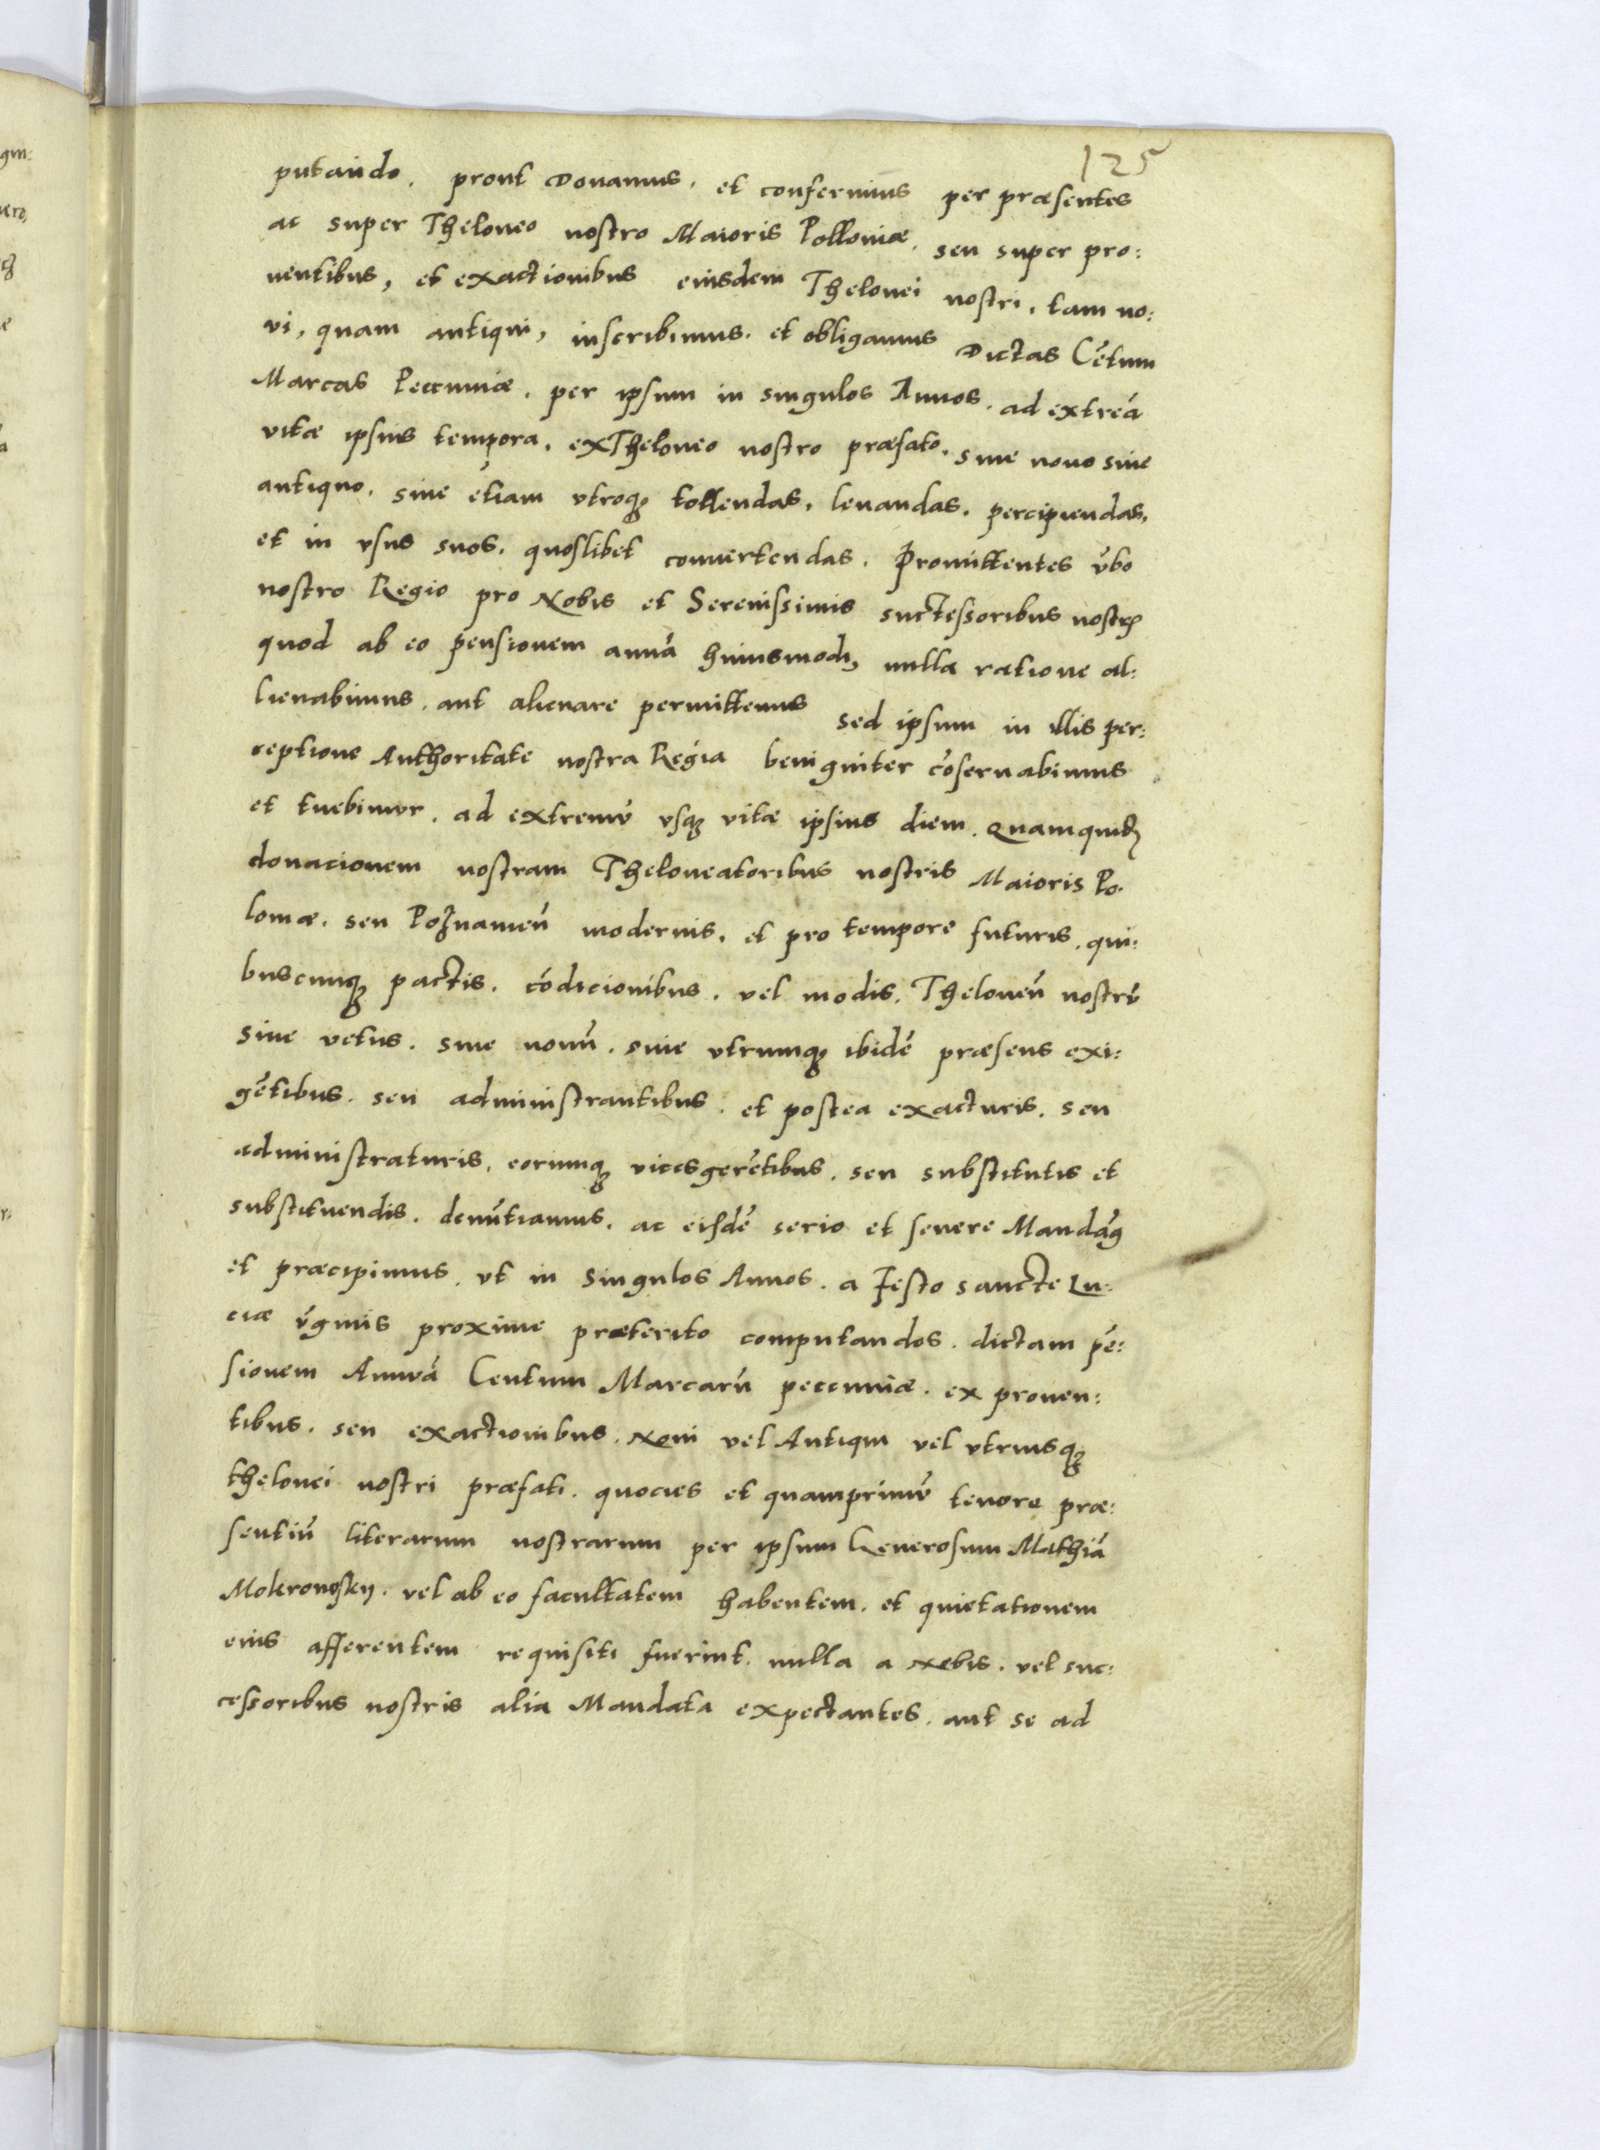 125
putando. prout Donamus. et conferimus per præsentes
ac super Theloneo nostro Maioris Polloniæ. seu super pro:
uentibus, et exactionibus eiusdem Thelonei nostri, tam no:
vi, quam antiqui, inscribimus. et obligamus Dictas Cẽtum
Marcas Peccuniæ. per ipsum in singulos Annos. ad extreã
vitæ ipsius tempora. ex Theloneo nostro præfato. siue nouo siue
antiquo. siue etiam vtroqꝫ tollendas. leuandas. percipiendas.
et in vsus suos. quoslibet conuertendas. Promittentes ṽbo
nostro Regio pro Nobis et Serenissimis suctessoribus nostrꝭ
quod ab eo pensionem annuã huiusmodi, nulla ratione al:
lienabimus. aut alienare permittemus sed ipsum in illis per:
ceptione Authoritate nostra Regia benigniter cõseruabimus
et tuebimur. ad extremũ vsqꝫ vitæ ipsius diem. Quamquidẽ
donacionem nostram Theloneatoribus nostris Maioris Po.
loniæ. seu Poznanieñ modernis. et pro tempore futuris. qui:
buscunqꝫ pactis. cõdicionibus. vel modis. Theloneũ nostrũ
siue vetus. siue nouũ. siue vtrumqꝫ ibidẽ præsens exi:
gẽtibus. seu administrantibus. et postea exacturis. seu
administraturis. eoriumqꝫ vicesgerẽtibus. seu substitutis et
substituendis. denũtiamus. ac eisdẽ serio et seuere Mandãꝫ
et præcipimus. vt in singulos Annos. a Festo sanctte Lu:
ciæ ṽginis proxime præterito computandos. dictam pẽ:
sionem Annuã Centum Marcarũ peccuniæ. ex prouen:
tibus. seu exactionibus. Noui vel Antiqui vel vtriusqꝫ
thelonei nostri præfati. quocies et quamprimũ tenore præ:
sentiũ literarum nostrarum per ipsum Generosum Mathiã
Mokronosky. vel ab eo facultatem habentem. et quietationem
eius afferentem requisiti fuerint. nulla a Nobis. vel suc:
cessoribus nostris alia Mandata expectantes. aut se ad